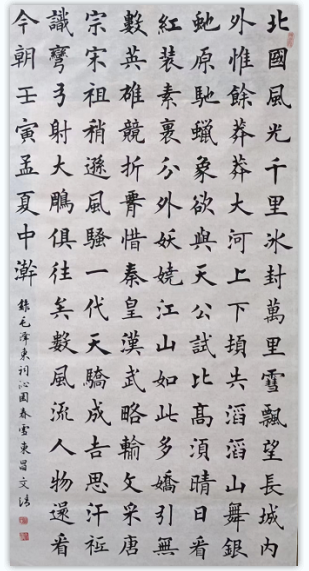 北國風光千里冰封萬里雪飄望長城內
外惟餘莽莽大河上下頓失滔滔山舞銀
虵原馳蠟象欲與天公試比高須晴日看
紅装素裹分外妖嬈江山如此多嬌引無
數英雄競折腰惜秦皇漢武略輸文采唐
宗宋祖稍遜風騷一代天驕成吉思汗祗
識彎弓射大鵰俱往矣數風流人物還看
今朝壬寅孟夏中澣
錄毛澤東詞沁園春雪東昌文